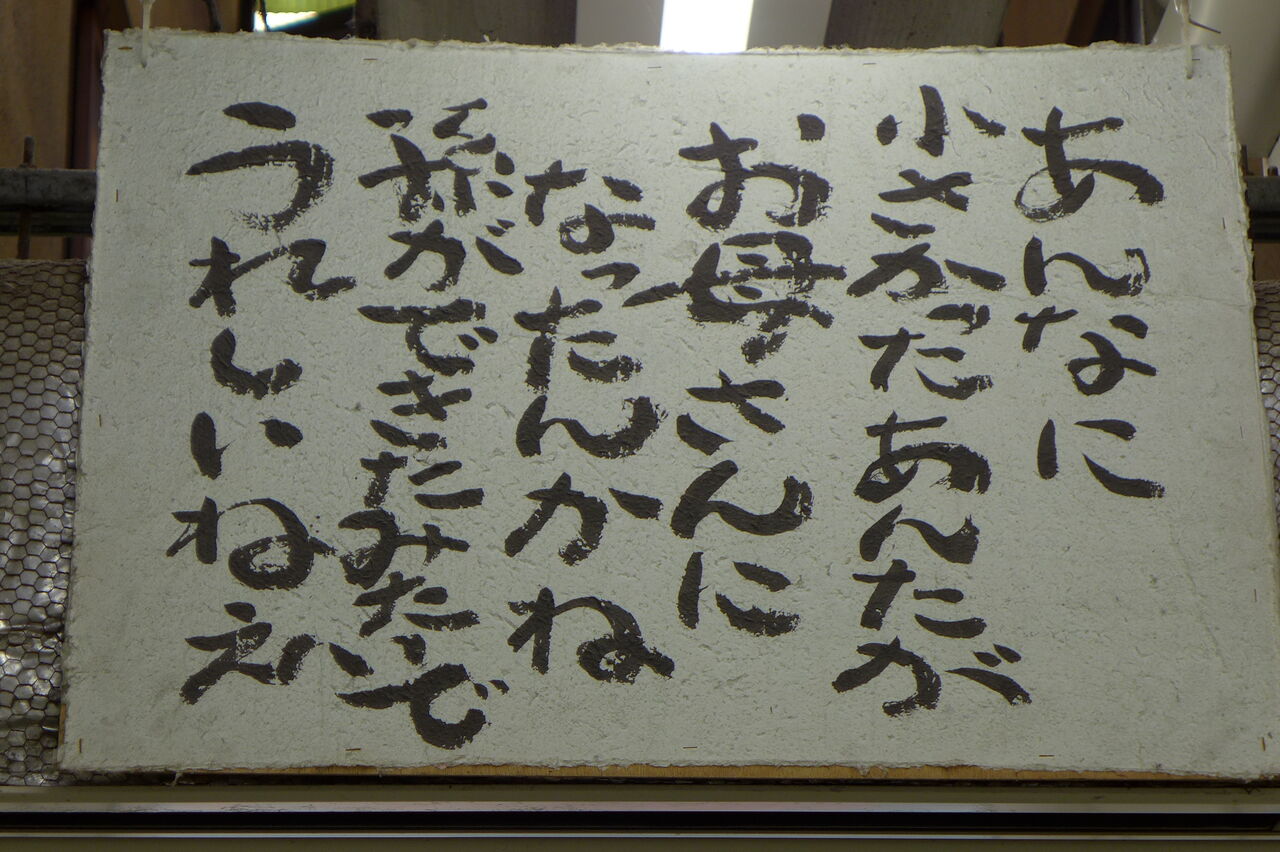 あんなに
小さかったあんたが
お母さんに
なったんかね
孫ができたみたいで
うれしいねえ